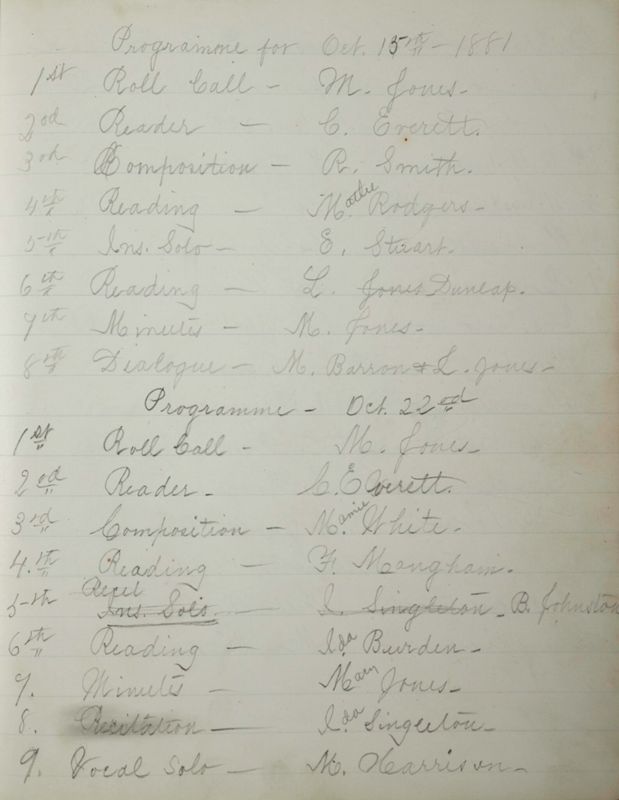 Programme for Oct. 15th - 1881
1st Roll Call - M. Jones -
2nd Reader - C. Everett.
3rd Composition - R. Smith.
4th Reading - Mattie Rodgers -
5th Ins. Solo - E. Stuart.
6th Reading - L. Jones Dunlap.
7th Minutes - M. Jones -
8th Dialogue - M. Barron & L. Jones -
Programme - Oct. 22nd
1st Roll Call - M. Jones -
2nd Reader - C. Everett.
3rd Composition - Mamie White.
4th Reading - F. Mangham.
Recit
5th Ins. Solo - I. Singleton - B. Johnston
6th Reading - Ida Burden -
7. Minutes - Mary Jones -
8. Recitation - Ida Singleton -
9. Vocal Solo - M. Harrison -